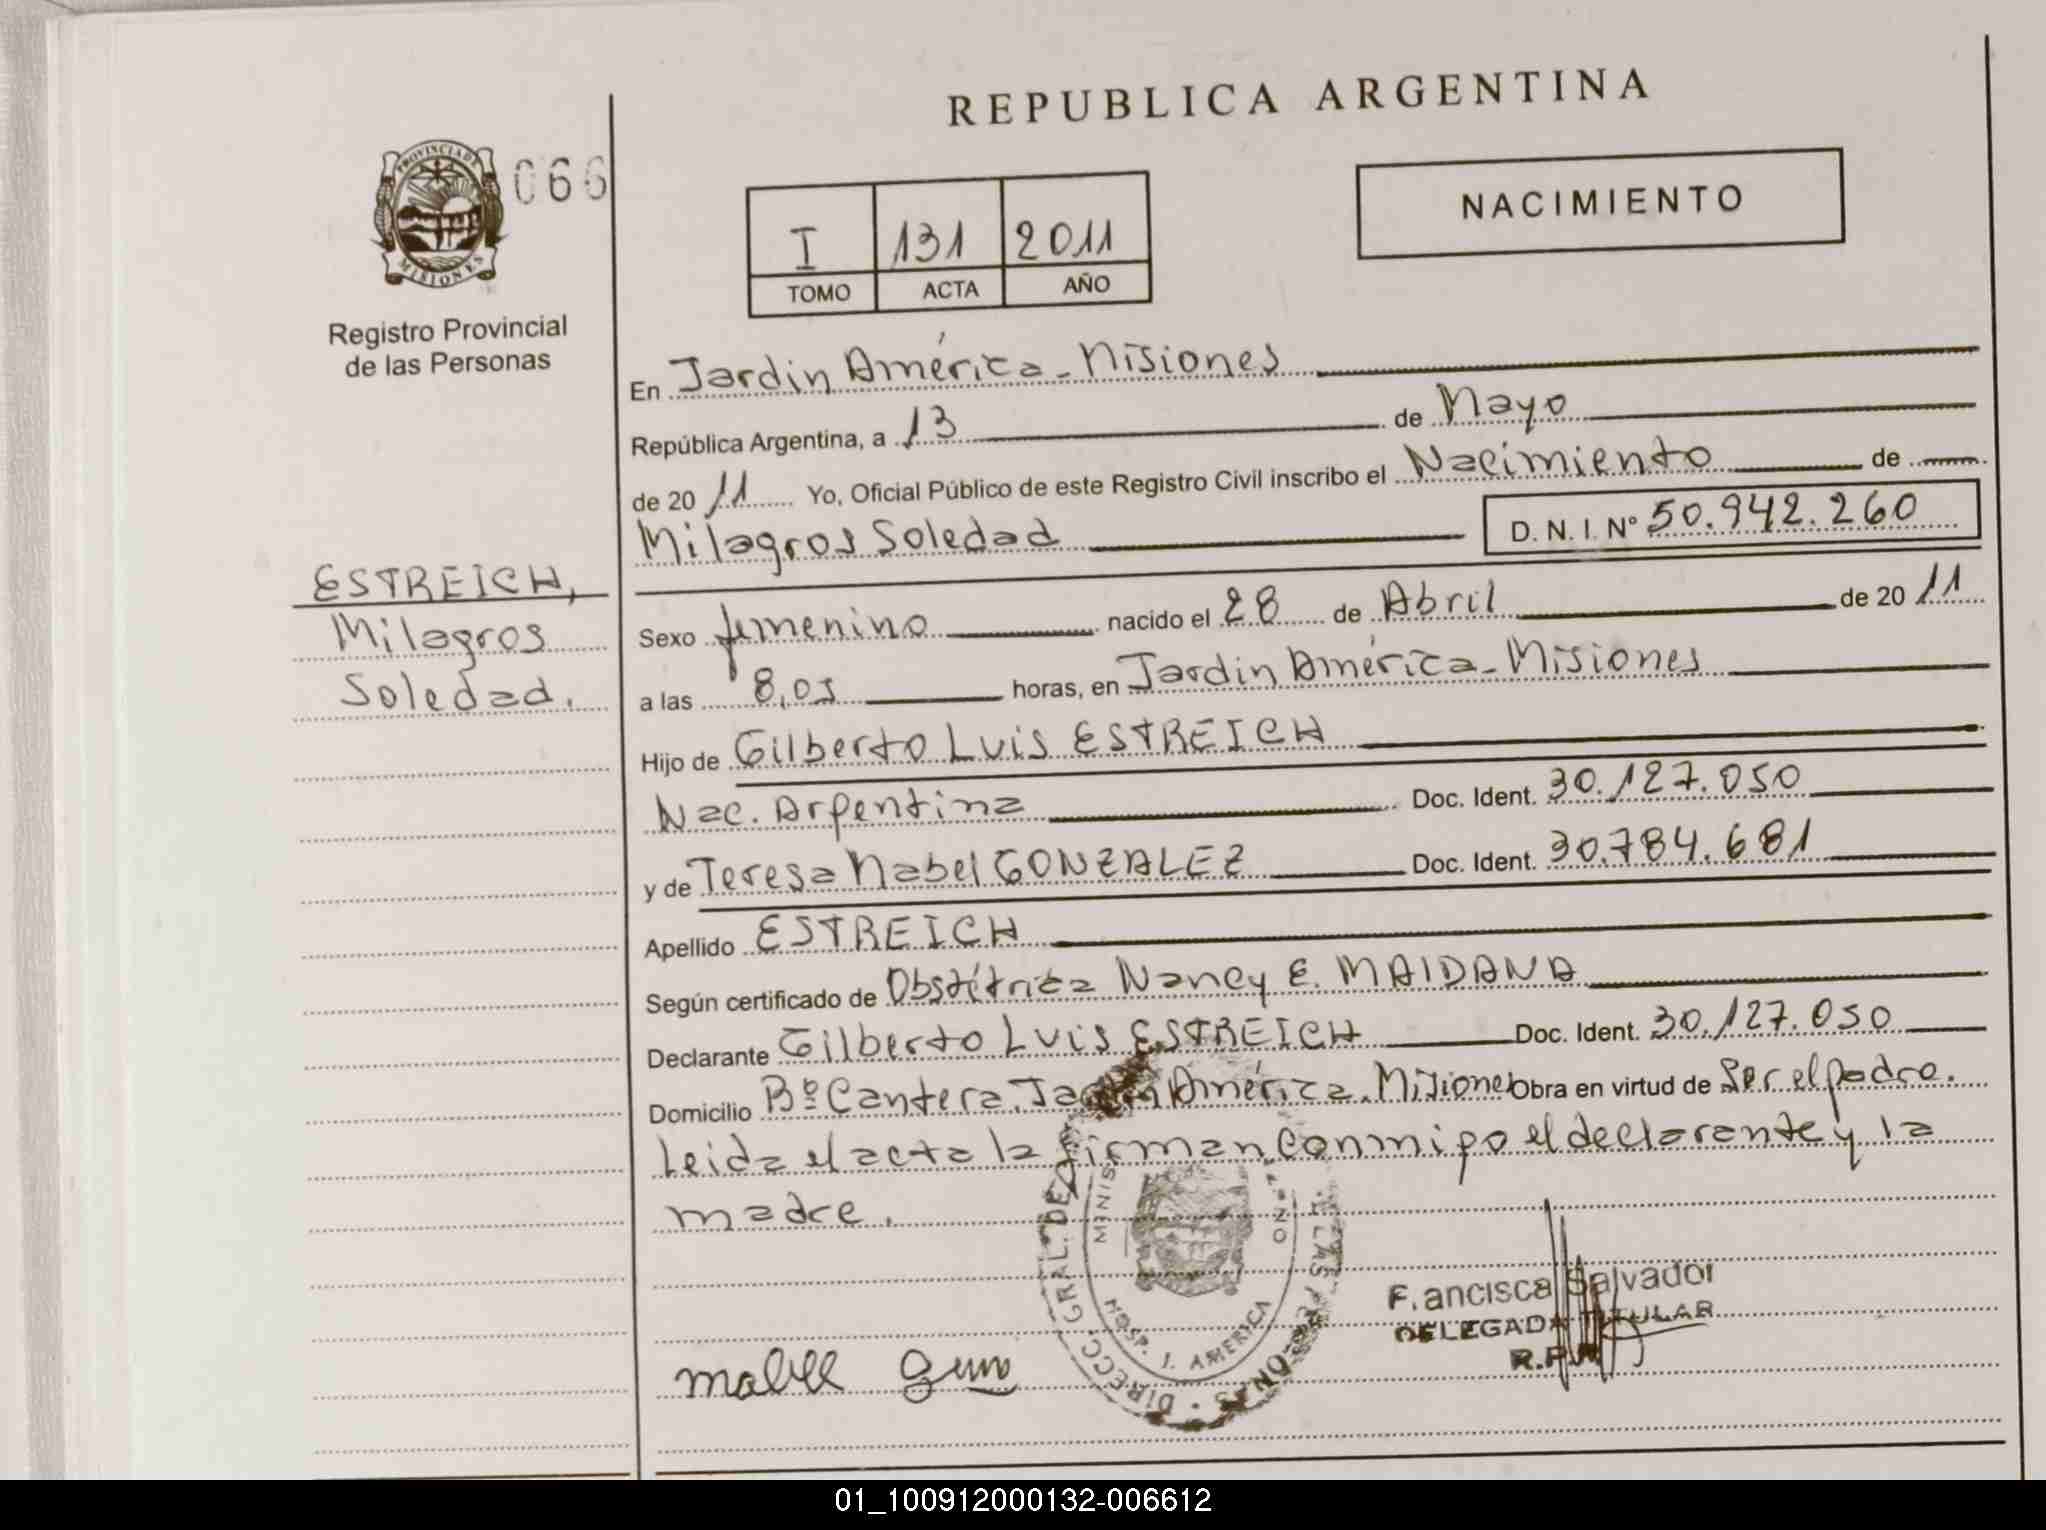 REPUBLICA ARGENTINA
PROVINCIA DE
MISIONES
066
NACIMIENTO
I 131 2011
TOMO ACTA AÑO
Registro Provincial
de las Personas
En Jardin América - Misiones
República Argentina, a 13 de Mayo
de 20 11 Yo, Oficial Público de este Registro Civil inscribo el Nacimiento de
Milagros Soledad D. N. I. N° 50.942.260
ESTREICH,
Milagros
Soledad.
Sexo femenino nacido el 28 de Abril de 20 11
a las 8,05 horas, en Jardin América - Misiones
Hijo de Gilberto Luis ESTREICH
Nac. Argentina Doc. Ident. 30.127.050
y de Teresa Mabel GONZALEZ Doc. Ident. 30.784.681
Apellido ESTREICH
Según certificado de Obstétrica Nancy E. MAIDANA
Declarante Gilberto Luis ESTREICH Doc. Ident. 30.127.050
Domicilio Bº Cantera. Jardin América. Misiones Obra en virtud de Ser el padre.
Leida el acta la firman conmigo el declarante y la
madre.
DIRECC. GRAL. DE LAS PERSONAS
HOSP. J. AMERICA
Francisca Salvador
DELEGADA TITULAR
R.P.P.
mabel
01_100912000132-006612